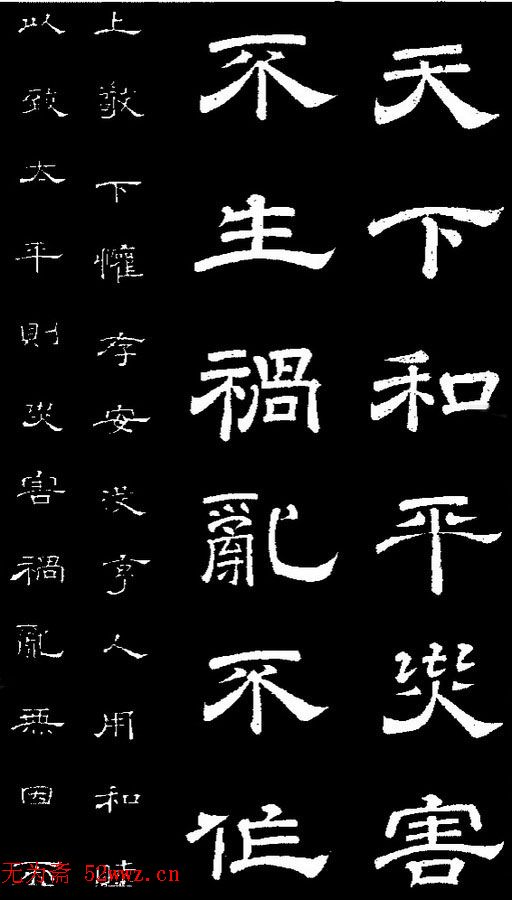 天下和平災害
不生禍亂不作
上敬下懽存安没享人用和
以致太平則災害禍亂無因
无为斋 52wwz.cn